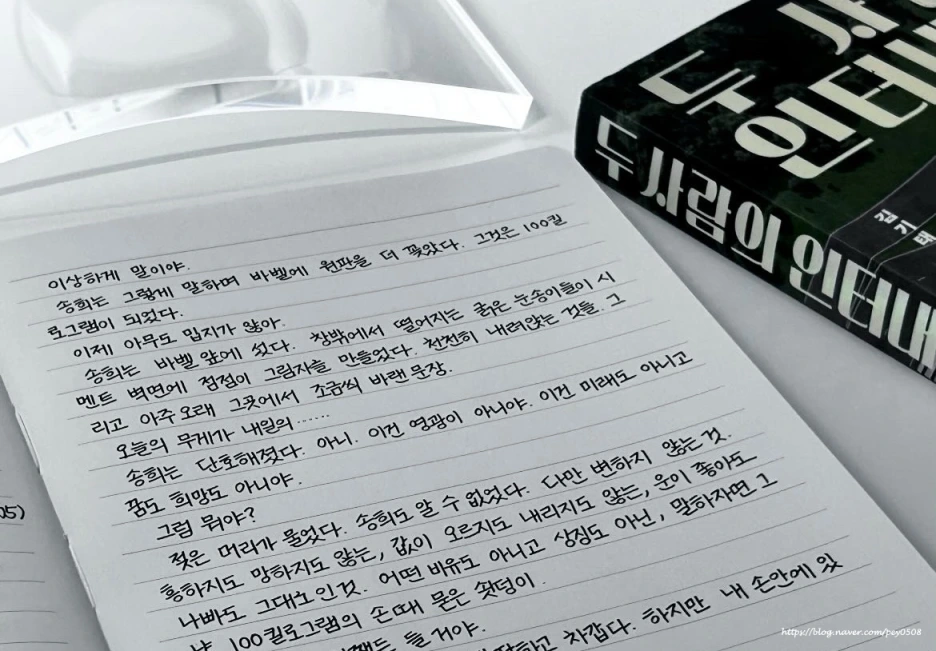 두 사
인터
두 사람의 인터내
김기태
이상하게 말이야.
송희는 그렇게 말하며 바벨에 원판을 더 꽂았다. 그것은 100킬
로그램이 되었다.
이제 아무도 믿지가 않아.
송희는 바벨 앞에 섰다. 창밖에서 떨어지는 굵은 눈송이들이 시
멘트 벽면에 점점이 그림자를 만들었다. 천천히 내려앉는 것들. 그
리고 아주 오래 그곳에서 조금씩 바랜 문장.
오늘의 무게가 내일의……
송희는 단호해졌다. 아니. 이건 영광이 아니야. 이건 미래도 아니고
꿈도 희망도 아니야.
그럼 뭐야?
젖은 머리가 물었다. 송희도 알 수 없었다. 다만 변하지 않는 것.
흥하지도 망하지도 않는, 값이 오르지도 내리지도 않는, 운이 좋아도
나빠도 그대로인 것. 어떤 비유도 아니고 상징도 아닌, 말하자면 그
냥 100킬로그램의 손때 묻은 쇳덩이.
들 거야.
하고 차갑다. 하지만 내 손안에 있
05)
https://blog.naver.com/pey0508